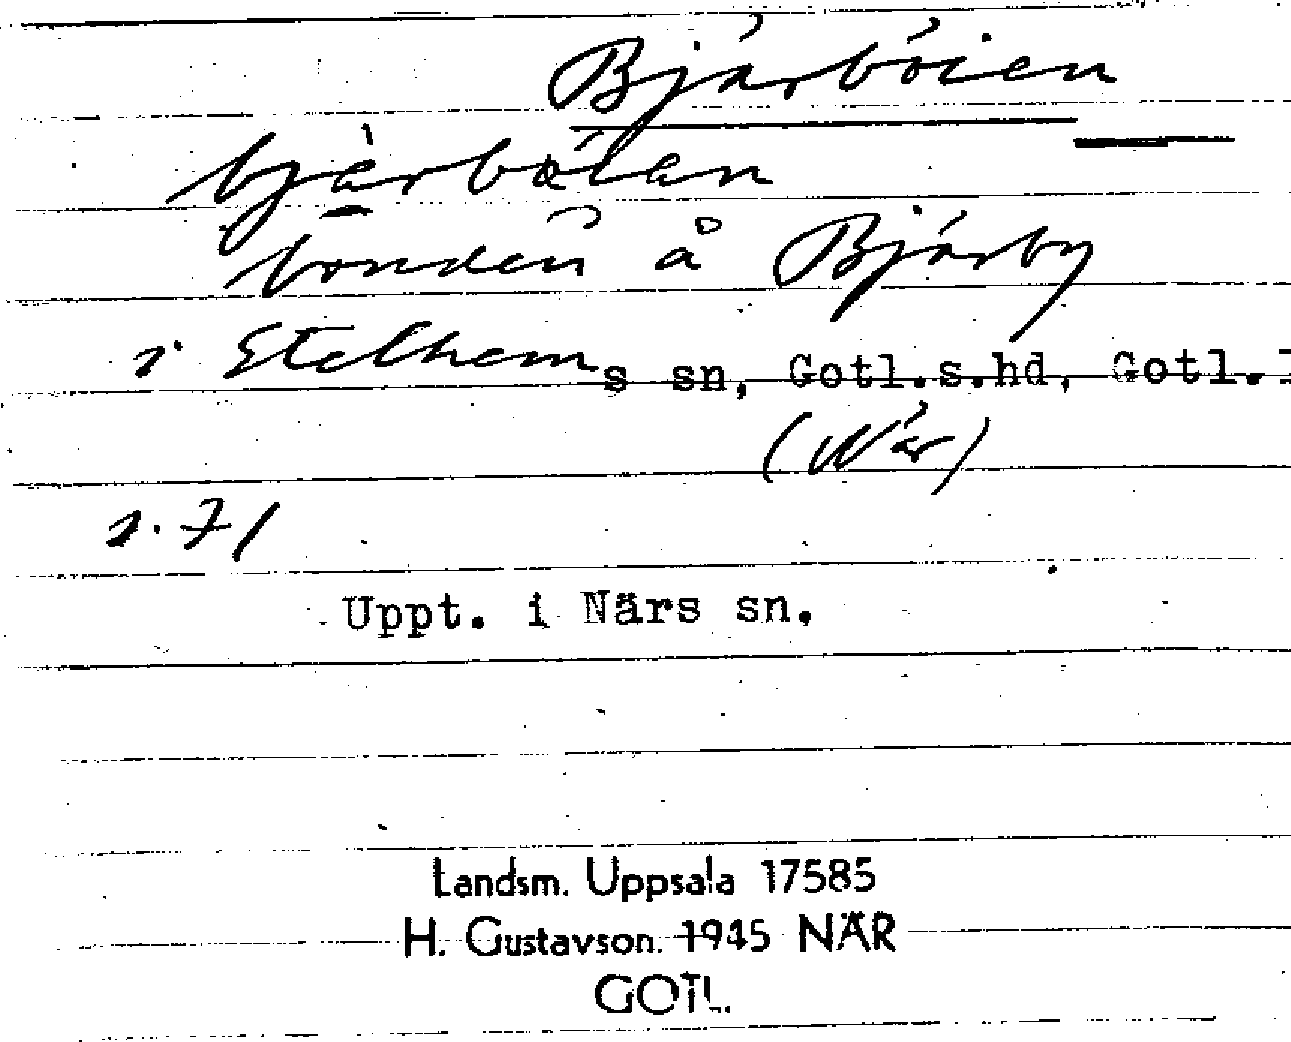 Bjärböien
bjàrbɵien
bonden å Bjärby
i Etelhems sn, Gotl.s.hd, Gotl.l
(När)
s. 71
Uppt. i Närs sn.
Landsm. Uppsala 17585
H. Gustavson. 1945 NÄR
GOTL.